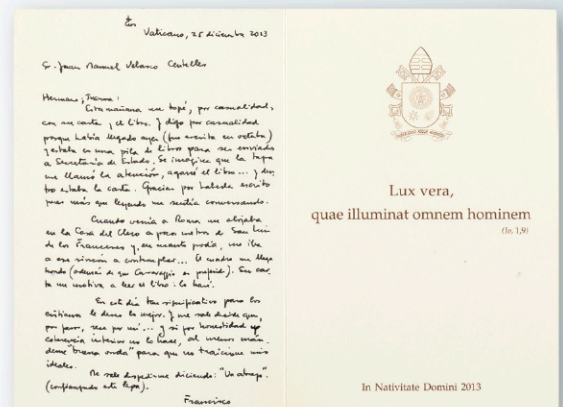 Vaticano, 25 diciembre 2013
Sr. Juan Manuel Velasco Centelles
Hermano,
Esta mañana me topé, por casualidad,
con su carta y el libro. Y digo por casualidad
porque había llegado ayer (fue escrita en octubre)
y estaba en una pila de libros para ser enviados
a Secretaría de Estado. Se imagine que la tapa
me llamó la atención, agarré el libro... y den-
tro estaba la carta. Gracias por haberla escrito
pues más que leyendo me sentía conversando.
Cuando venía a Roma me alojaba
en la Casa del Clero a pocos metros de San Luis
de los Franceses y, en cuanto podía, me iba
a ese rincón a contemplar... El cuadro me llega
hondo (además de que Caravaggio es preferido). Su car-
ta me motiva a leer el libro: lo haré.
En este día tan significativo para los
cristianos le deseo lo mejor. Y me sale decirle que,
por favor, rece por mí... y si por honestidad y
coherencia interior no lo hace, al menos mán-
deme "buena onda" para que no traicione mis
ideales.
Me sale despedirme diciendo: "Un abrazo".
Francisco
Lux vera,
quae illuminat omnem hominem
(Io, 1,9)
In Nativitate Domini 2013